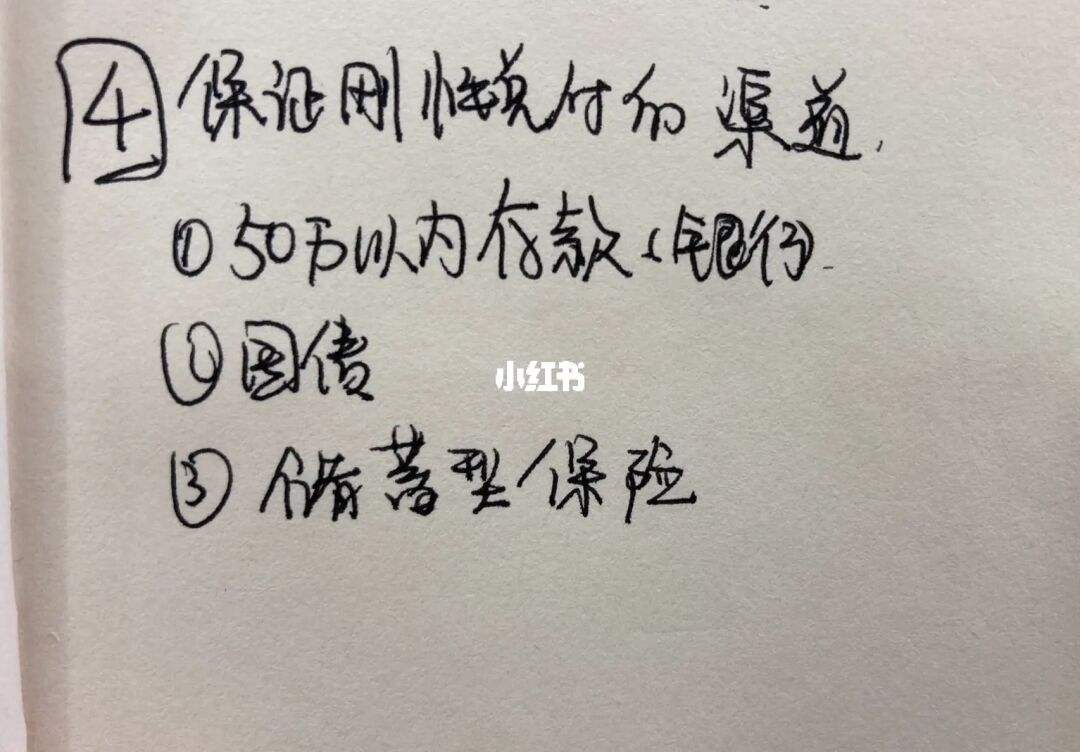 4 保证刚性兑付的渠道.
① 50万以内存款(银行).
② 国债
小红书
③ 储蓄型保险